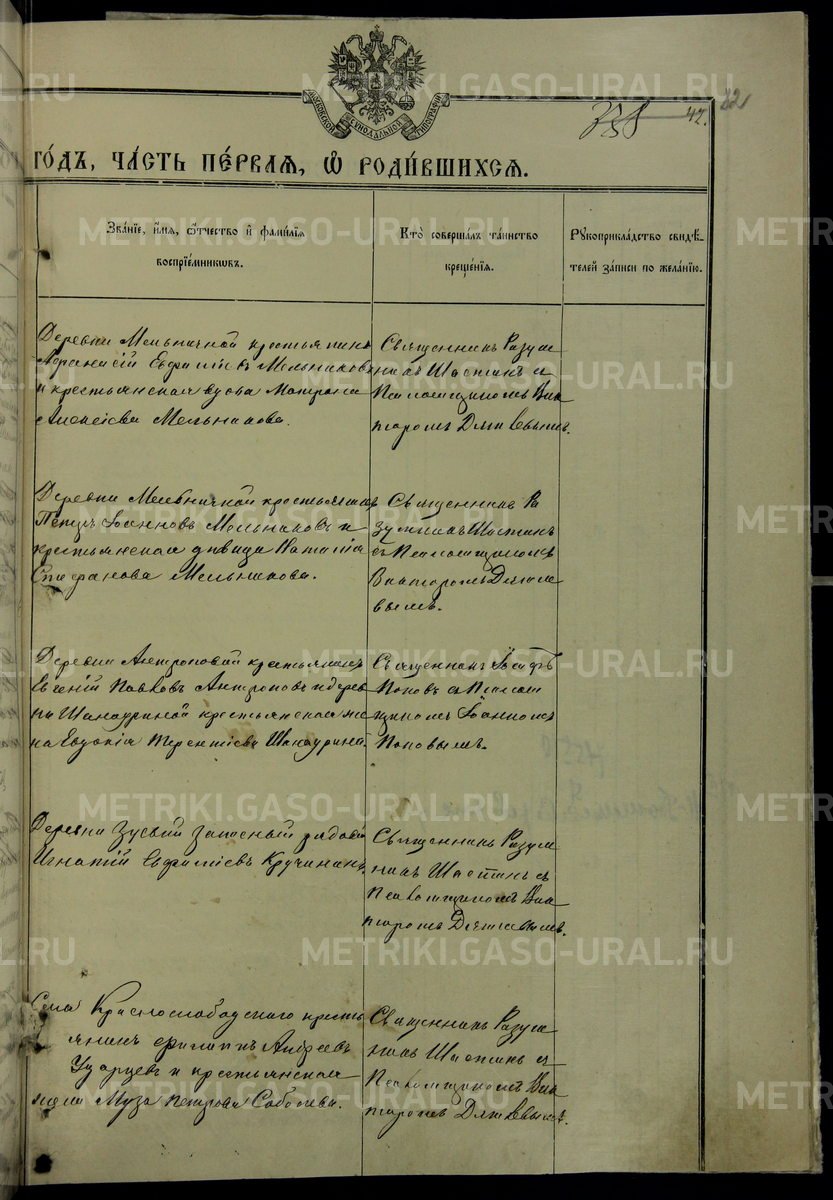 МОСКОВСКОЙ СѴНОДАЛЬНОЙ ТИПОГРАФІИ
42.
321
го́дъ, ча́сть пе́рваѧ, ѡ҆ роди́вшихсѧ.
Зва́нїе, и҆́мѧ, ѻ҆́тчество и҆ фами́лїѧ
воспрїе́мникѡвъ.
Кто̀ соверша́лъ та́инство
креще́нїѧ.
Рꙋкоприкла́дство свидѣ́-
телей за́писи по жела́нїю.
Деревни Мельничной крестьянинъ
Афанасій Евфиміевъ Мельниковъ
и крестьянская вдова Матрона
Алексіева Мельникова.
Священникъ Разум
никъ Шастинъ съ
Псаломщикомъ Вик
торомъ Дягилевымъ.
Деревни Мельничной крестьянинъ
Петръ Іоанновъ Мельниковъ и
крестьянская дѣвица Наталія
Стефанова Мельникова.
Священникъ Ра
зумникъ Шастинъ
съ Псаломщикомъ
Викторомъ Дягиле
вымъ.
Деревни Антроповой крестьянинъ
Евгеній Павловъ Антроповъ и дерев
ни Шанауриной крестьянская же
на Евдокія Терентіева Шанаурина.
Священникъ Іосифъ
Поповъ съ Псалом
щикомъ Іоанномъ
Поповымъ.
Деревни Зуевой запасный рядовой
Игнатій Евфиміевъ Кручининъ.
Священникъ Разум
никъ Шастинъ съ
Псаломщикомъ Вик
торомъ Дягилевымъ.
Села Краснослободскаго кресть
янинъ Филиппъ Андреевъ
Ударцевъ и крестьянская
жена Муза Петрова Соболева.
Священникъ Разум
никъ Шастинъ съ
Псаломщикомъ Вик
торомъ Дягилевымъ.
METRIKI.GASO-URAL.RU